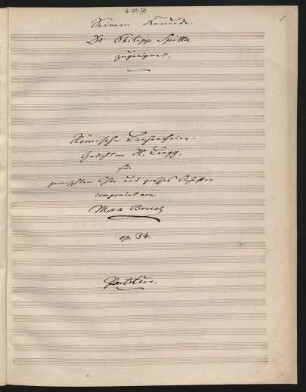 Seinem Freunde
Dr Philipp Spitta
zugeeignet.
Römische Leichenfeier.
Gedicht von H. Lingg
für
gemischten Chor und großes Orchester
componirt von
Max Bruch
op. 34.
Partitur.